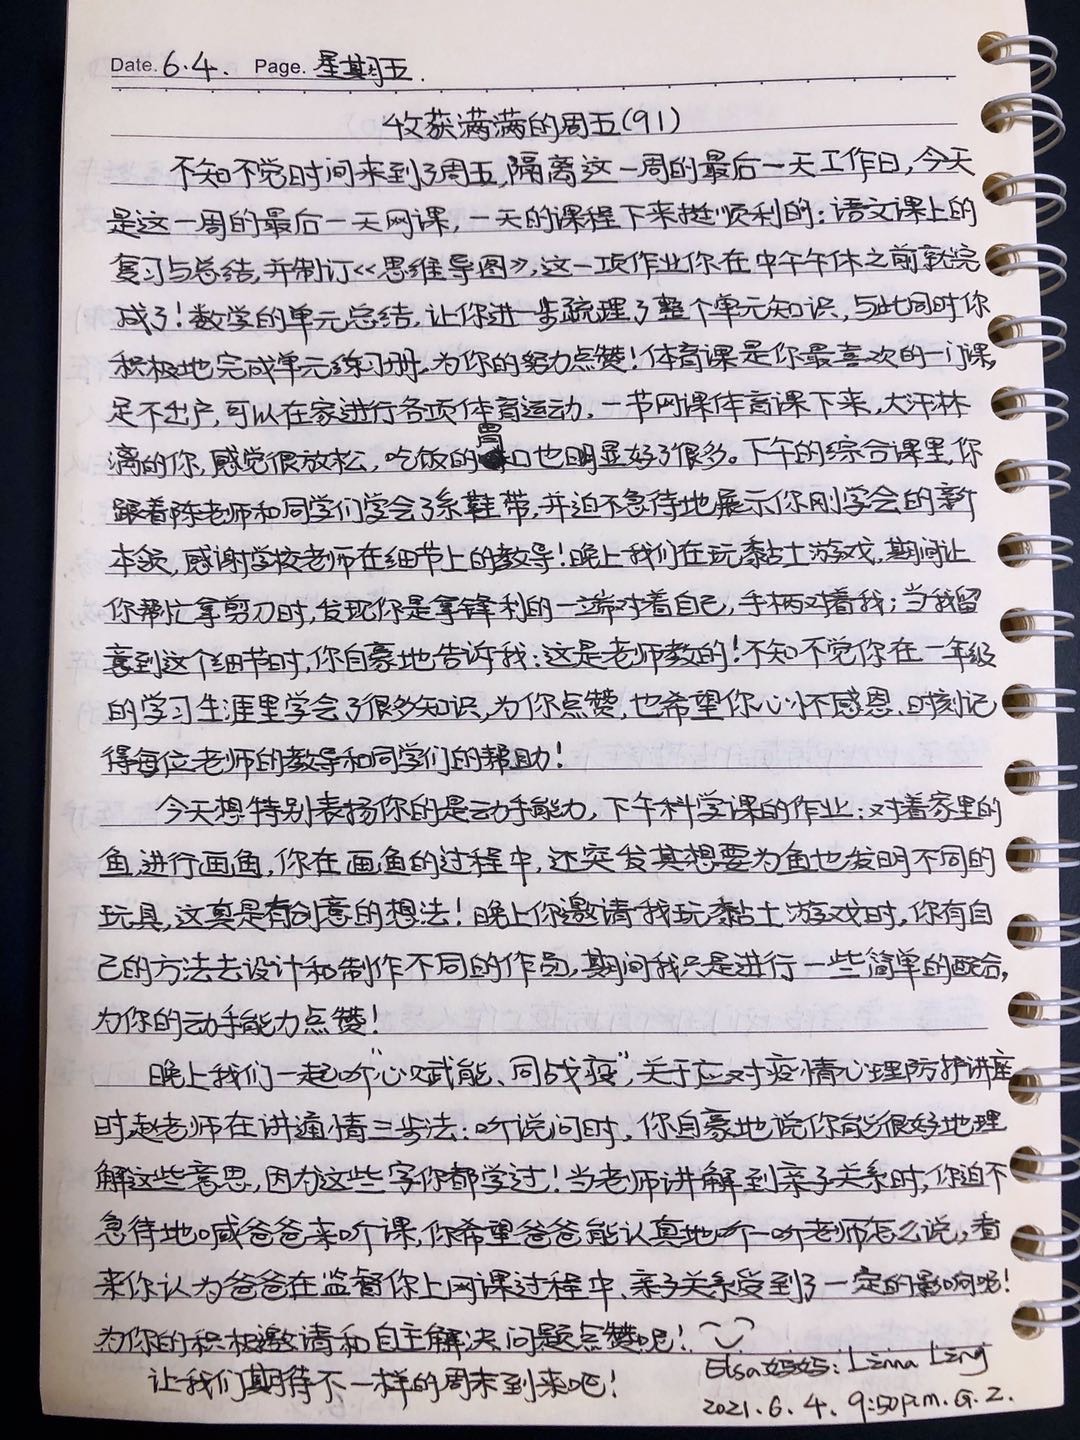 Date. 6.4. Page. 星期五.
收获满满的周五(91)
不知不觉时间来到了周五,隔离这一周的最后一天工作日,今天
是这一周的最后一天网课,一天的课程下来挺顺利的:语文课上的
复习与总结,并制订《思维导图》,这一项作业你在中午午休之前就完
成了!数学的单元总结,让你进一步疏理了整个单元知识,与此同时你
积极地完成单元练习册。为你的努力点赞!体育课是你最喜欢的一门课,
足不出户,可以在家进行各项体育运动,一节网课体育课下来,大汗淋
漓的你,感觉很放松,吃饭的胃口也明显好了很多。下午的综合课里,你
跟着陈老师和同学们学会了系鞋带,并迫不急待地展示你刚学会的新
本领,感谢学校老师在细节上的教导!晚上我们在玩黏土游戏,期间让
你帮忙拿剪刀时,发现你是拿锋利的一端对着自己,手柄对着我;当我留
意到这个细节时,你自豪地告诉我:这是老师教的!不知不觉你在一年级
的学习生涯里学会了很多知识,为你点赞,也希望你心怀感恩、时刻记
得每位老师的教导和同学们的帮助!
今天想特别表扬你的是动手能力,下午科学课的作业:对着家里的
鱼,进行画鱼,你在画鱼的过程中,还突发其想要为鱼也发明不同的
玩具,这真是有创意的想法!晚上你邀请我玩黏土游戏时,你有自
己的方法去设计和制作不同的作品,期间我只是进行一些简单的配合,
为你的动手能力点赞!
晚上我们一起听"心赋能、同战疫",关于应对疫情心理防护讲座
时,赵老师在讲通情三步法:听说问时,你自豪地说你能很好地理
解这些意思,因为这些字你都学过!当老师讲解到亲子关系时,你迫不
急待地喊爸爸来听课,你希望爸爸能认真地听一听老师怎么说,看
来你认为爸爸在监督你上网课过程中,亲子关系受到了一定的影响哦!
为你的积极邀请和自主解决问题点赞呢!
让我们期待不一样的周末到来吧!
Elsa妈妈:Linna Ling
2021.6.4. 9:50p.m. G.Z.